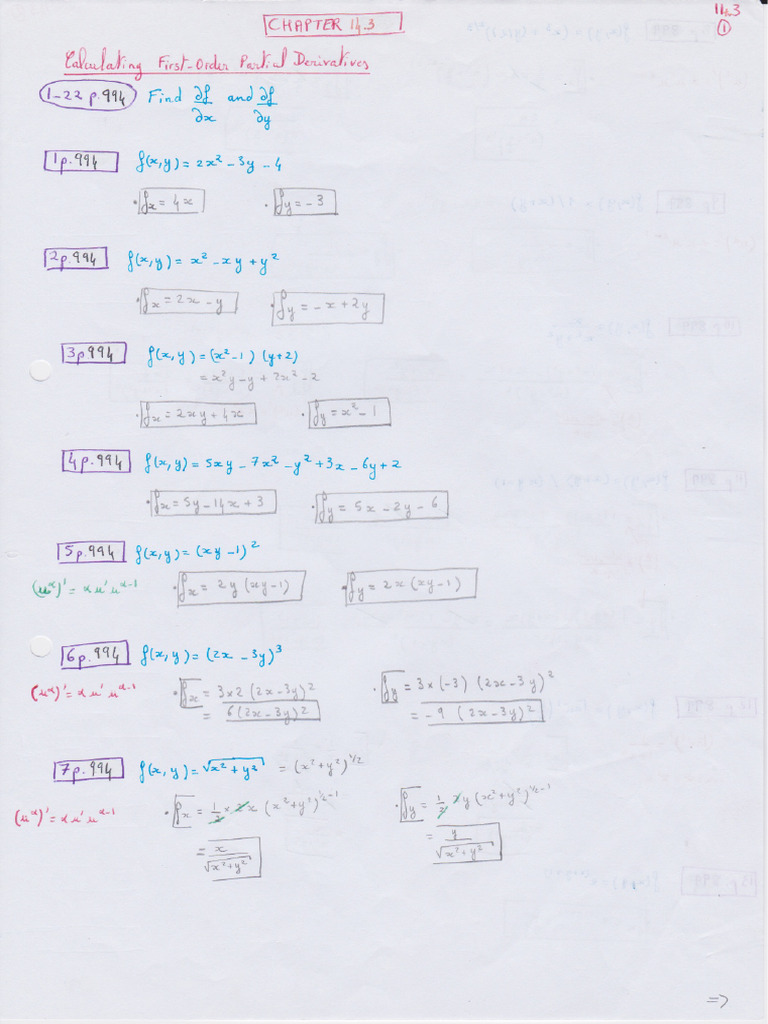 14.3
①
CHAPTER 14.3
Calculating First-Order Partial Derivatives
1-22 p.994 Find ∂f/∂x and ∂f/∂y
1p.994 f(x,y) = 2x² - 3y - 4
• fx = 4x • fy = -3
2p.994 f(x,y) = x² - xy + y²
• fx = 2x - y • fy = -x + 2y
3p994 f(x,y) = (x²-1) (y+2)
= x²y - y + 2x² - 2
• fx = 2xy + 4x • fy = x² - 1
4p.994 f(x,y) = 5xy - 7x² - y² + 3x - 6y + 2
• fx = 5y - 14x + 3 • fy = 5x - 2y - 6
5p.994 f(x,y) = (xy-1)²
(u^α)' = α u' u^α-1 • fx = 2y (xy-1) • fy = 2x (xy-1)
6p.994 f(x,y) = (2x - 3y)³
(u^α)' = α u' u^α-1 • fx = 3×2 (2x-3y)² • fy = 3×(-3) (2x-3y)²
= 6(2x-3y)² = -9 (2x-3y)²
7p.994 f(x,y) = √x²+y² = (x²+y²)^1/2
(u^α)' = α u' u^α-1 • fx = 1/2 × 2x (x²+y²)^1/2-1 • fy = 1/2 2y (x²+y²)^1/2-1
= x/√x²+y² = y/√x²+y²
=>